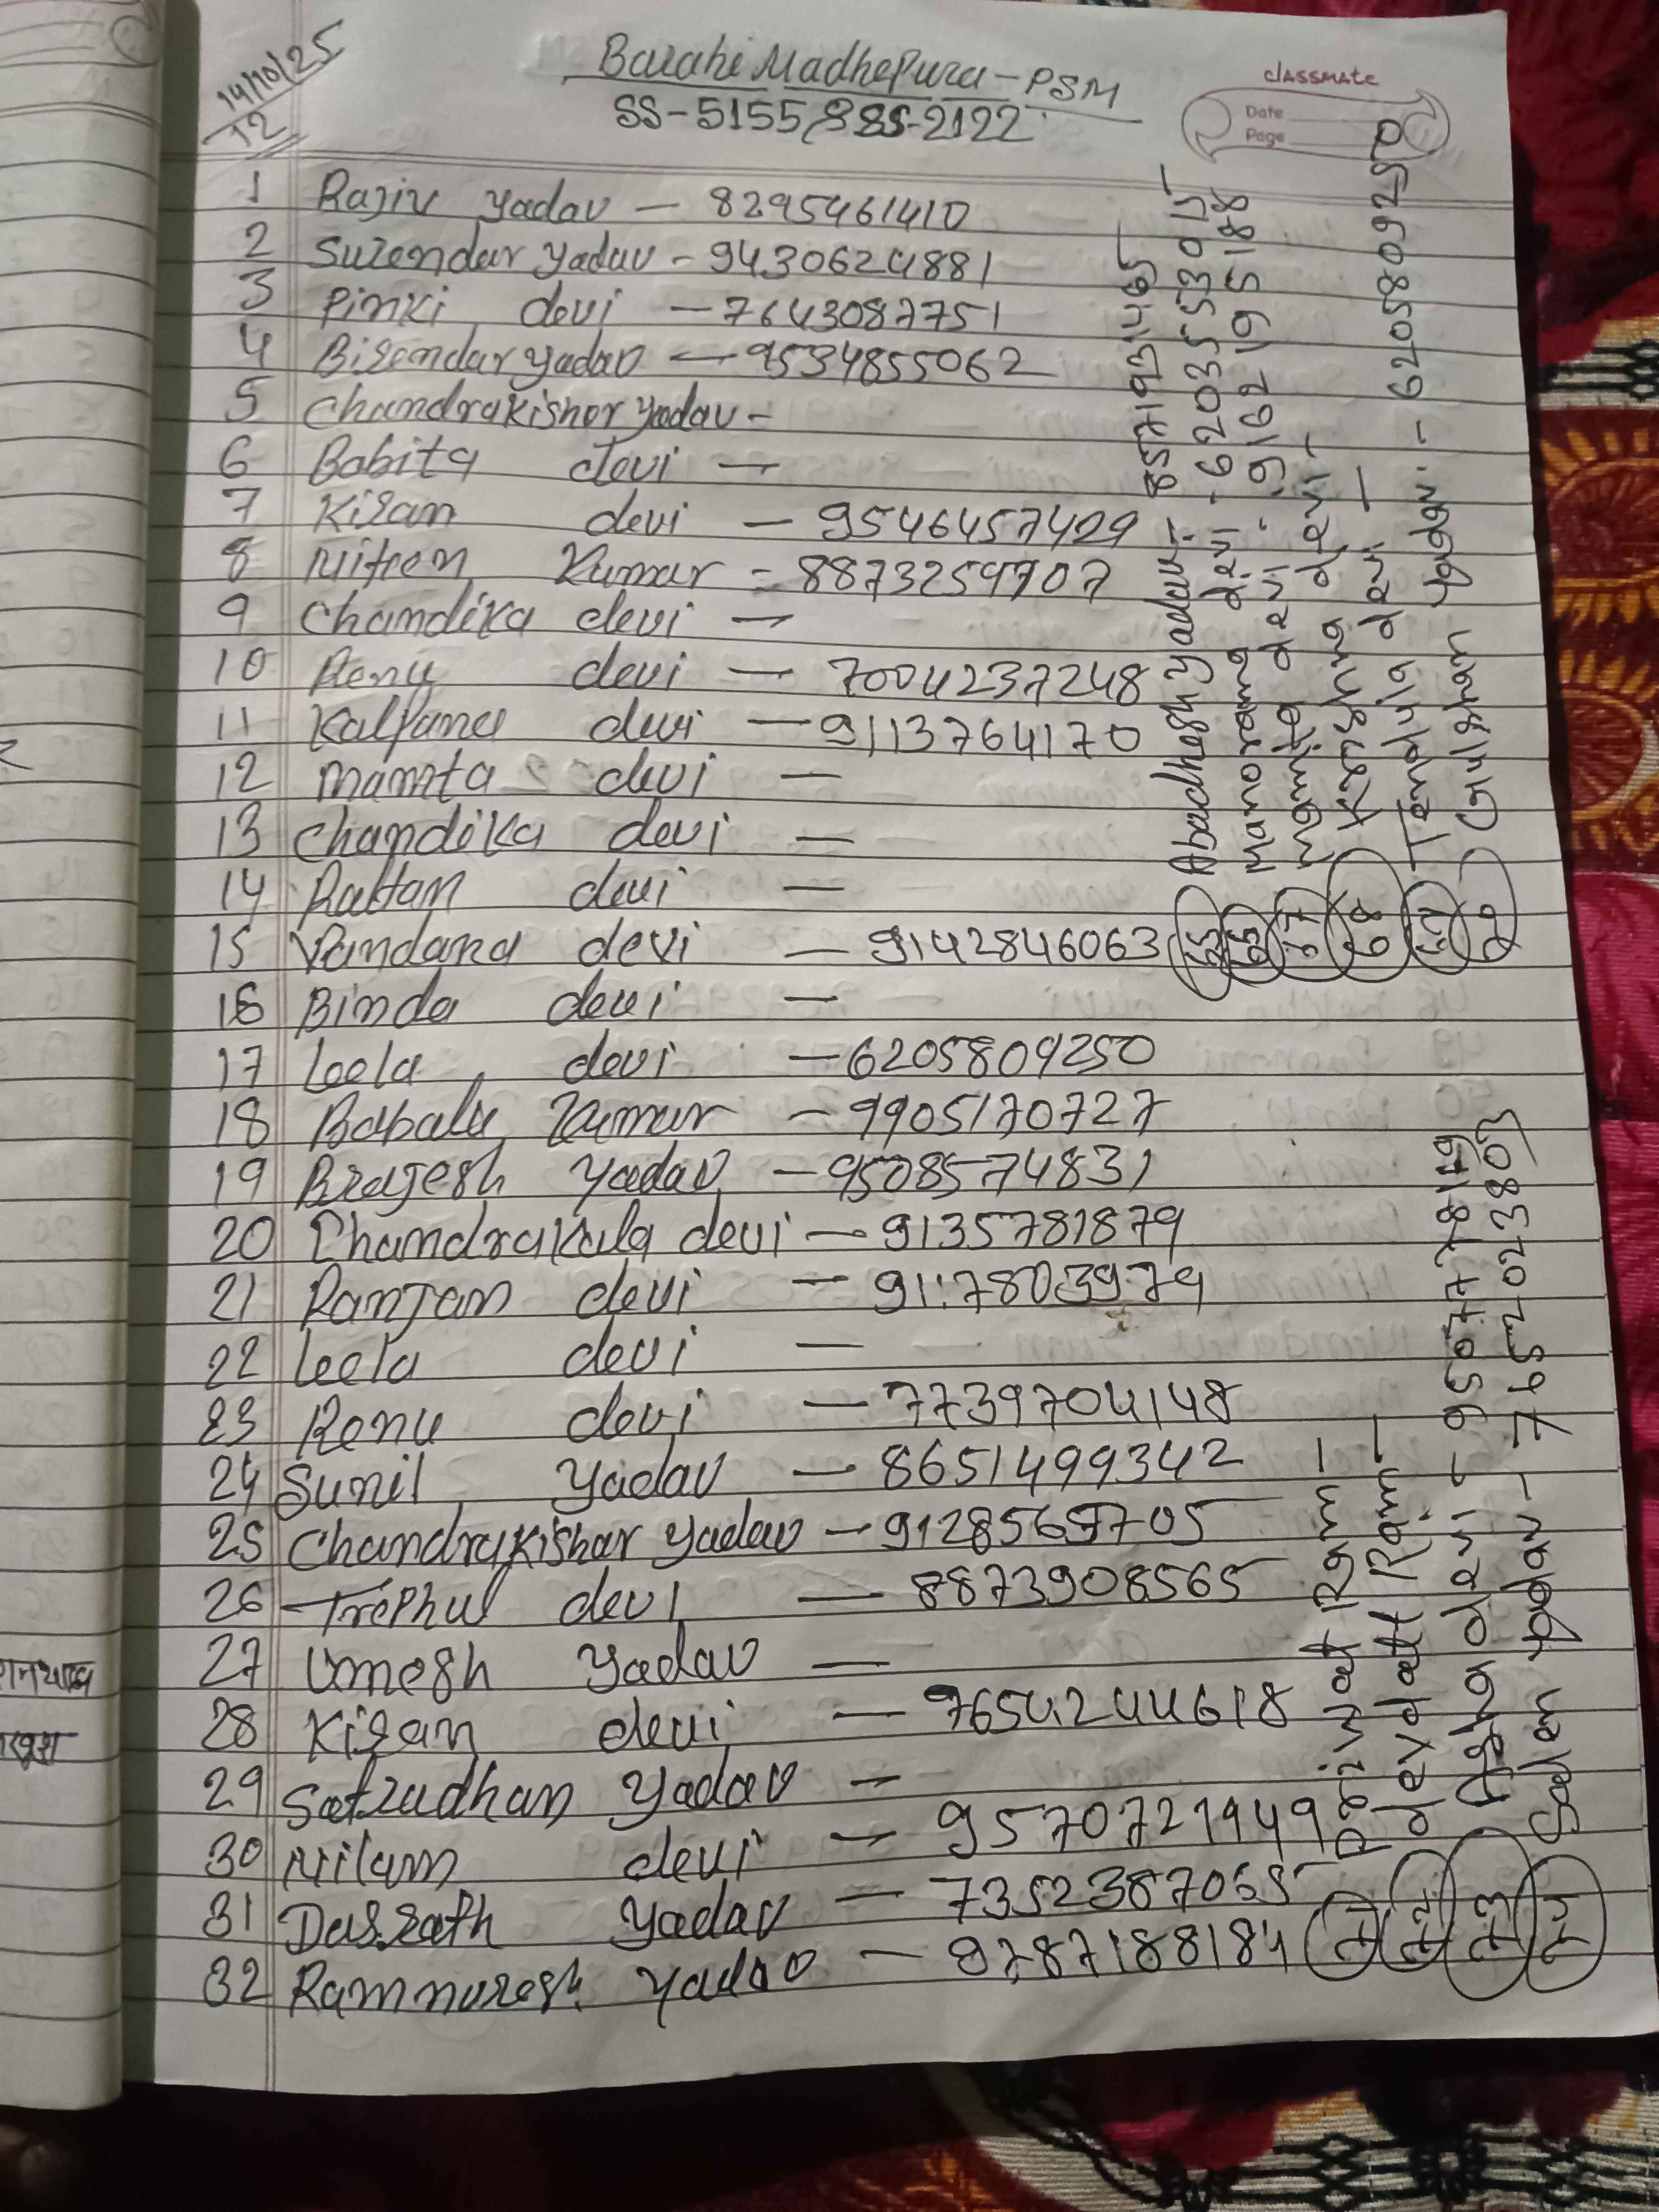 14/10/25
12
Barahi Madhepura - PSM
SS-5155, SSS-2122
classmate
Date
Page
1 Rajiv yadav - 8295461410
2 Surendar yadav - 9430624881
3 Pinki devi - 7643087751
4 Birendar yadav - 9534855062
5 Chandrakishor yadav -
6 Babita devi -
7 Kiran devi - 9546457429
8 Nitren Kumar - 8873259707
9 Chandika devi -
10 Renu devi - 7004237248
11 Kalpana devi - 9113764170
12 Mamta devi -
13 Chandika devi -
14 Rattan devi -
15 Vandana devi - 9142846063
16 Binda devi -
17 Leela devi - 6205809250
18 Babalu Kumar - 9905170727
19 Brajesh yadav - 9508574831
20 Chandrakala devi - 9135781879
21 Ranjan devi - 9117803979
22 leela devi -
23 Renu devi - 7739704148
24 Sunil yadav - 8651499342
25 Chandrakishor yadav -
26 Trephul devi - 8873908565
27 Umesh yadav -
28 Kiran devi -
29 Satrudhan yadav -
30 Nilam devi - 9570721949
31 Dasrath yadav - 7352387065
32 Ramnuresh yadav -
Abadhesh yadav - 8571931465
Manorama devi - 6203553015
67 mamta devi - 9162195188
68 Krashna devi -
devi -
70 Gulshan yadav - 6205809250
Ram -
devdatt Ram -
devi - 9507778119
yadav - 7652023803